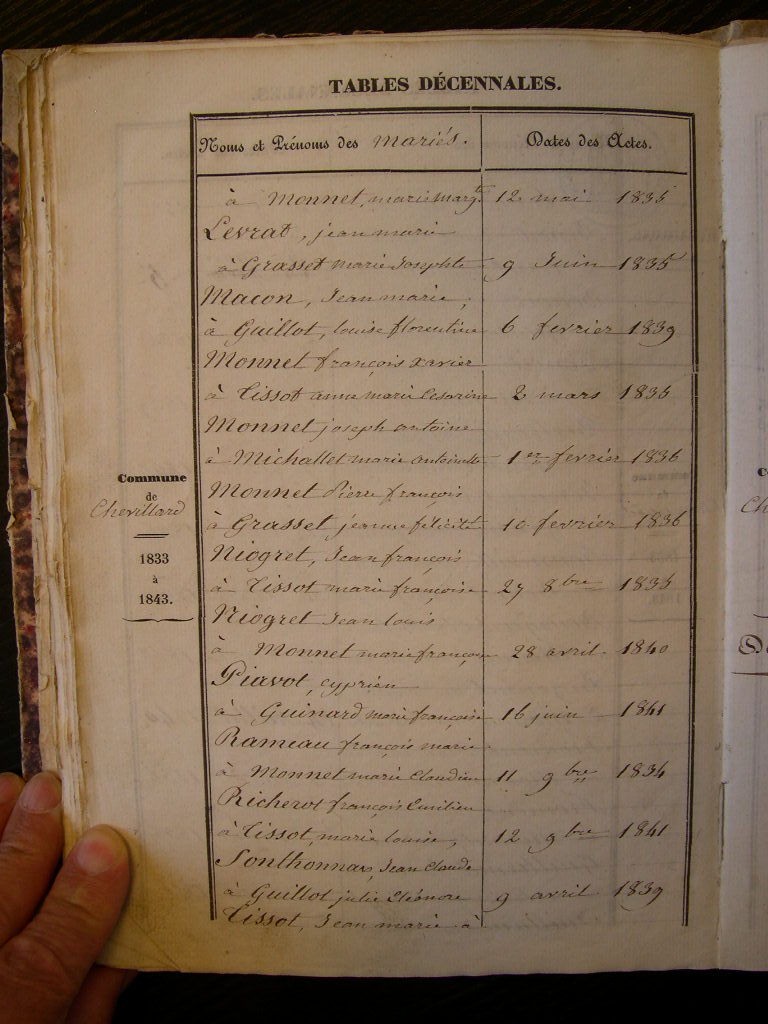 TABLES DÉCENNALES.
Noms et Prénoms des mariés.
Dates des Actes.
à Monnet, marie Margte 12 mai 1835
Levrat, jean marie
à Grasset marie Josephte 9 Juin 1835
Macon, Jean marie,
à Guillot, louise florentine 6 fevrier 1839
Monnet françois xavier
à Tissot anne marie Cesarine 2 mars 1835
Monnet joseph antoine
à Michallet marie antoinette 1er fevrier 1836
Monnet Pierre françois
à Grasset jeanne félicité 10 fevrier 1836
Niogret, Jean françois
à Tissot marie françoise 27 8bre 1835
Niogret Jean louis
à Monnet marie françoise 28 avril. 1840
Piavot, cyprien
à Guinard marie françoise 16 juin 1841
Rameau françois marie.
à Monnet marie Claudine 11 9bre 1834
Richerot françois Emilien
à Tissot, marie louise, 12 9bre 1841
Sonthonnax, Jean Claude
à Guillot julie Eléonore 9 avril 1839
Tissot, Jean marie à
Commune
de
Chevillard
1833
à
1843.